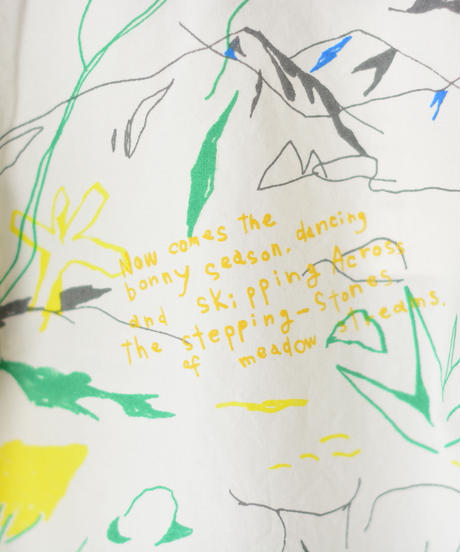 Now comes the
bonny season. dancing
and skipping Across
the stepping-Stones
of meadow streams.